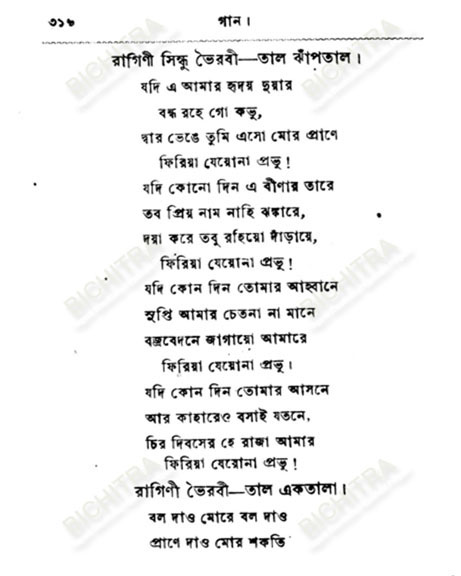 ৩১৬ গান।
রাগিণী সিন্ধু ভৈরবী—তাল ঝাঁপতাল।
যদি এ আমার হৃদয় দুয়ার
বন্ধ রহে গো কভু,
দ্বার ভেঙে তুমি এসো মোর প্রাণে
ফিরিয়া যেয়োনা প্রভু!
যদি কোনো দিন এ বীণার তারে
তব প্রিয় নাম নাহি ঝঙ্কারে,
দয়া করে তবু রহিয়ো দাঁড়ায়ে,
ফিরিয়া যেয়োনা প্রভু!
যদি কোন দিন তোমার আহ্বানে
সুপ্তি আমার চেতনা না মানে
বজ্রবেদনে জাগায়ো আমারে
ফিরিয়া যেয়োনা প্রভু।
যদি কোন দিন তোমার আসনে
আর কাহারেও বসাই যতনে,
চির দিবসের হে রাজা আমার
ফিরিয়া যেয়োনা প্রভু!
রাগিণী ভৈরবী—তাল একতালা।
বল দাও মোরে বল দাও
প্রাণে দাও মোর শকতি
BICHITRA
BICHITRA
BICHITRA
BICHITRA
BICHITRA
BICHITRA